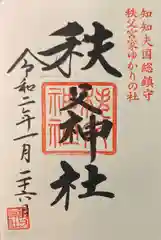 知知夫国総鎮守
秩父宮家ゆかりの社
秩父神社
令和二年一月二十六日